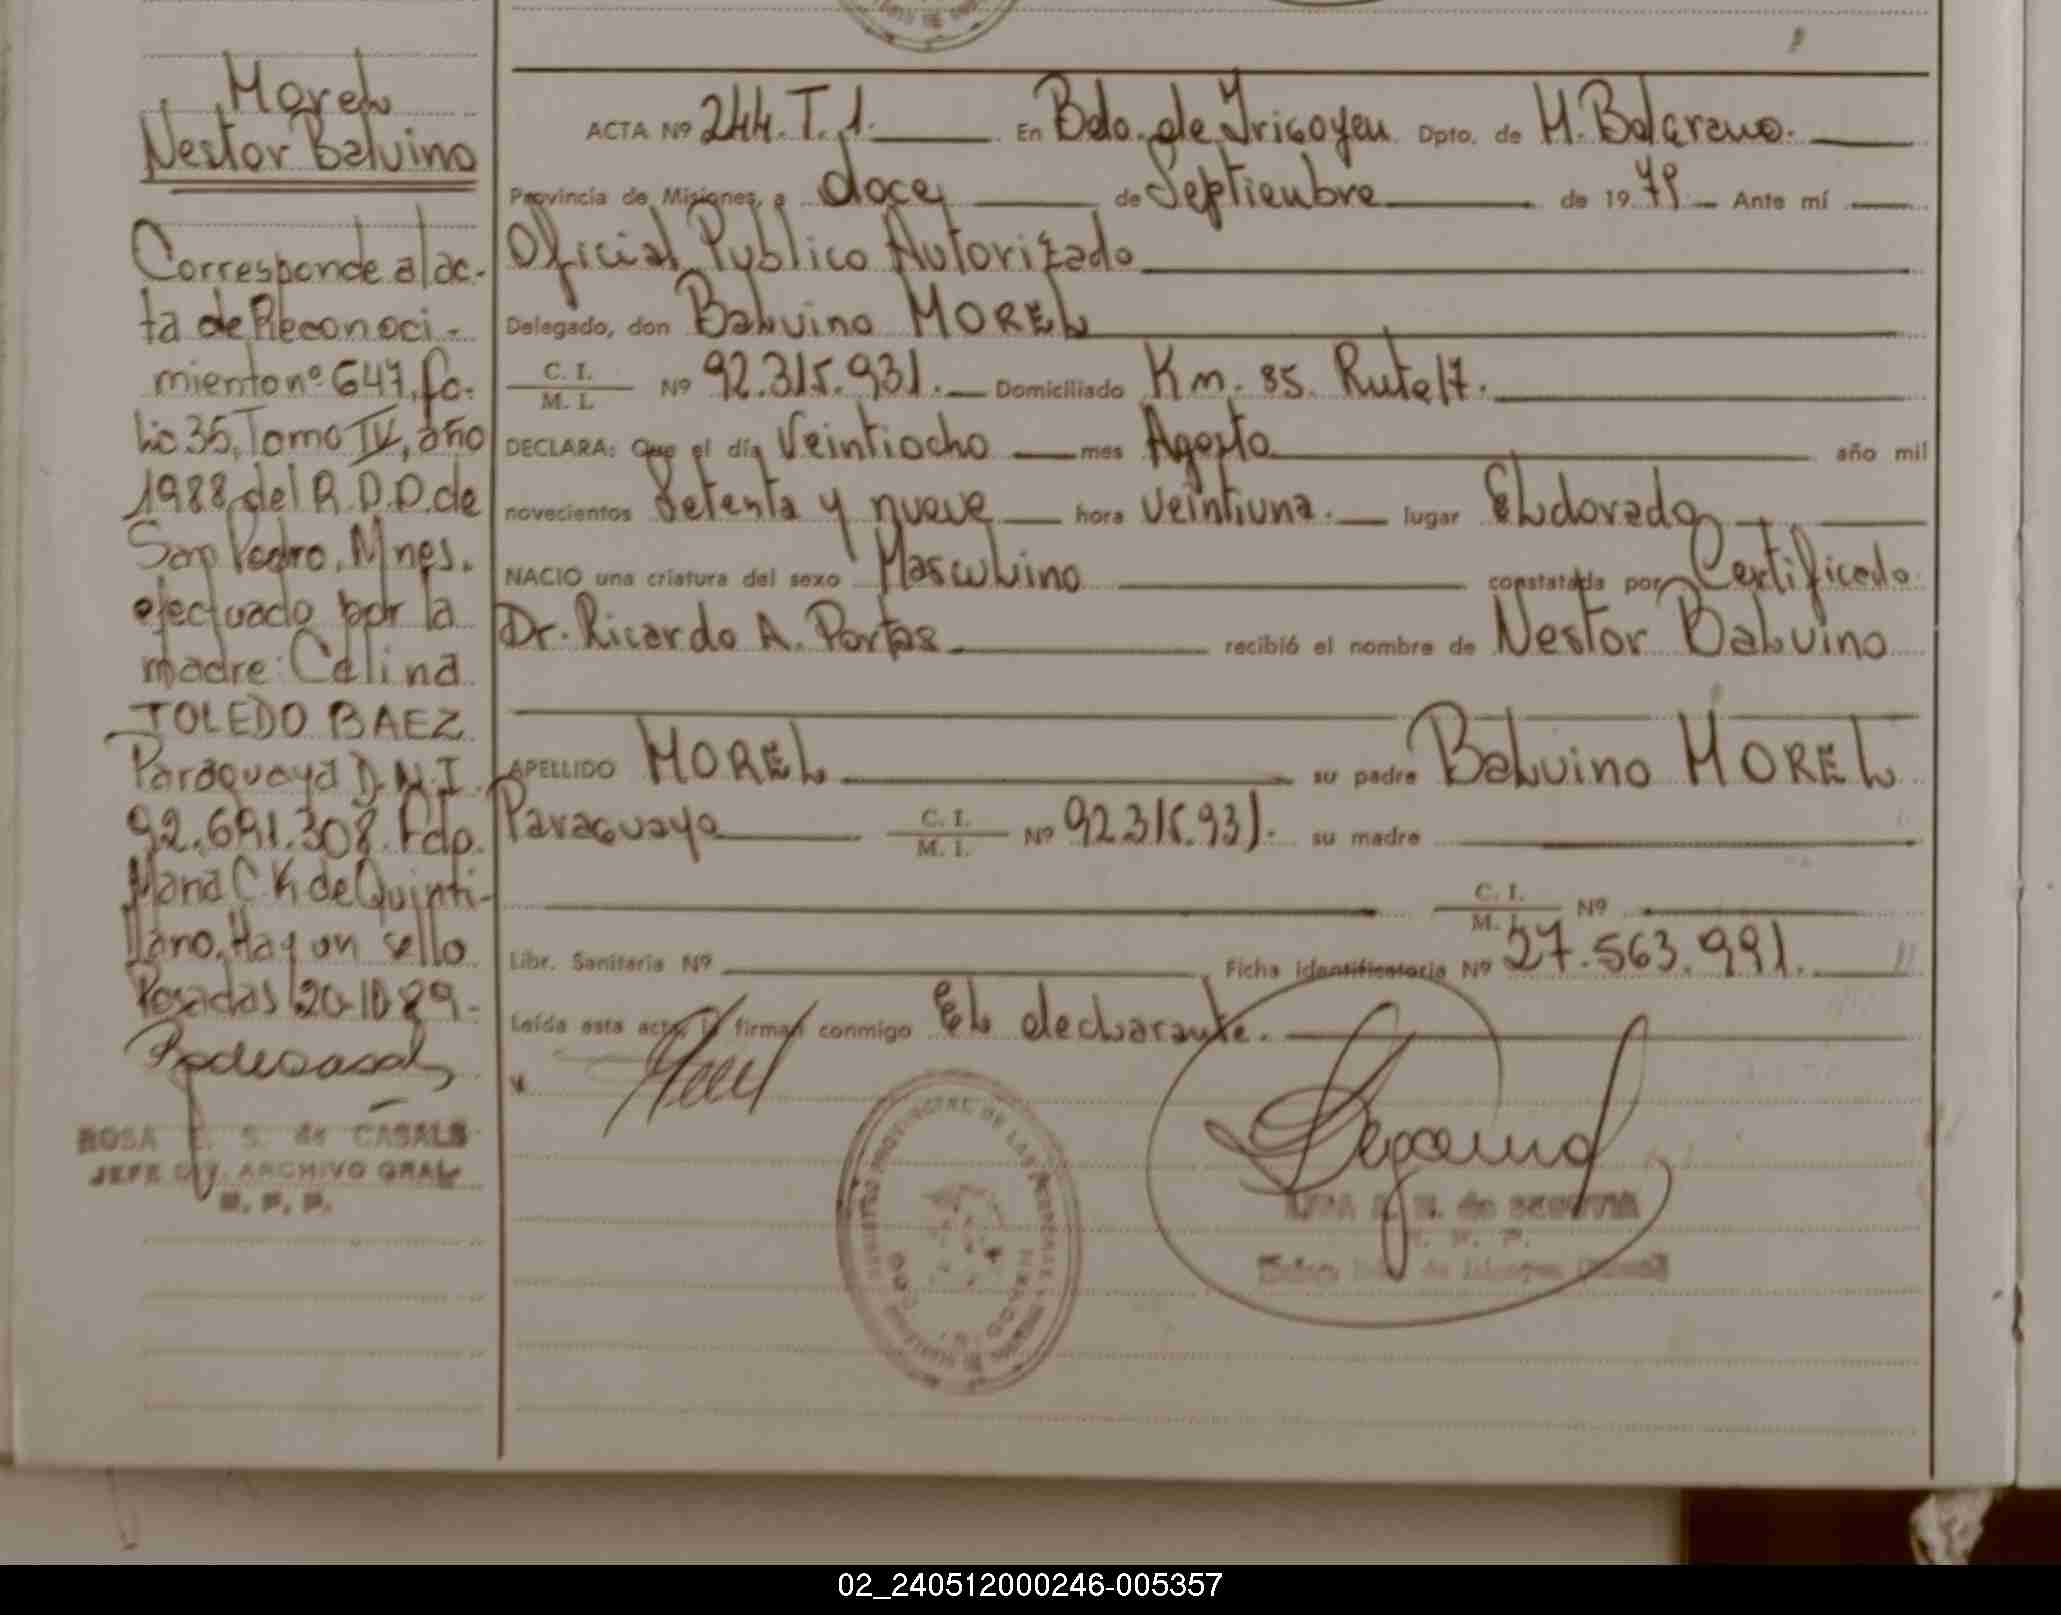 Morel
Nestor Baluino
Corresponde al ac-
ta de Reconoci-
miento nº 647, fo-
lio 35, Tomo IV, año
1988 del R.D.P. de
San Pedro, Mnes.
efectuado por la
madre: Celina
TOLEDO BAEZ
Paraguaya D.N.I.
92.691.308. Fdo.
Maria C. K de Quinti-
llano. Hay un sello
Posadas 20-10-89-
ROSA E. S. de CASALS
JEFE DIV. ARCHIVO GRAL
R. P. P.
ACTA Nº 244. T. 1. En Bdo. de Irigoyen Dpto. de M. Belgrano.
Provincia de Misiones, a doce de Septiembre de 1979 Ante mí
Oficial Publico Autorizado
Delegado, don Baluino MOREL
C. I. / M. I. Nº 92.315.931. Domiciliado Km. 35. Ruta 17.
DECLARA: Que el día Veintiocho mes Agosto año mil
novecientos Setenta y nueve hora veintiuna. lugar Eldorado
NACIO una criatura del sexo Masculino constatada por Certificado
Dr. Ricardo A. Portas recibió el nombre de Nestor Baluino
APELLIDO MOREL su padre Baluino MOREL
Paraguayo C. I. / M. I. Nº 92.315.931. su madre
C. I. / M. I. Nº
Libr. Sanitaria Nº Ficha identificatoria Nº 27.563.991.
Leída esta acta, la firman conmigo El declarante.
02_240512000246-005357